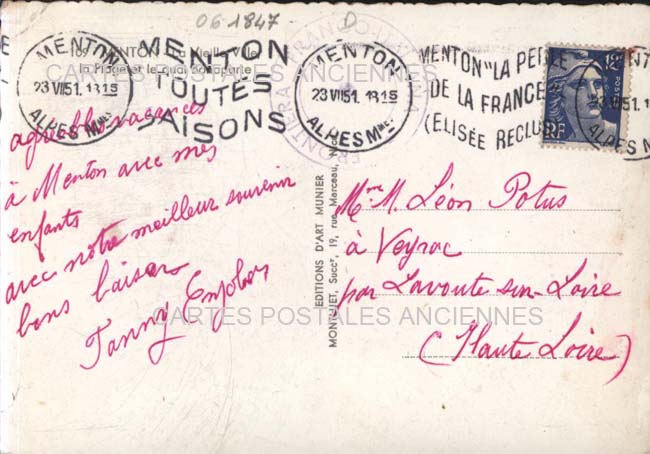 06 1847 D
MENTON La Vieille Ville
la Plage et le quai Bonaparte
CARTES POSTALES ANCIENNES
MENTON
23 VII 51. 1815
ALPES Mmes
MENTON
TOUTES
SAISONS
FRONTIERA FRANCO ITALIANA
MENTON
23 VII 51. 1815
ALPES Mmes
MENTON "LA PERLE
DE LA FRANCE"
(ELISÉE RECLUS)
12F
POSTES
RF
51. 1815
ALPES Mmes
agréables vacances
à Menton avec mes
enfants
avec notre meilleur souvenir
bons baisers
Fanny
EDITIONS D'ART MUNIER
MONTUJET, Succr, 19, rue Marceau,
Mme M. Léon Potus
à Veyrac
par Lavoute sur-Loire
(Haute Loire)
CARTES POSTALES ANCIENNES